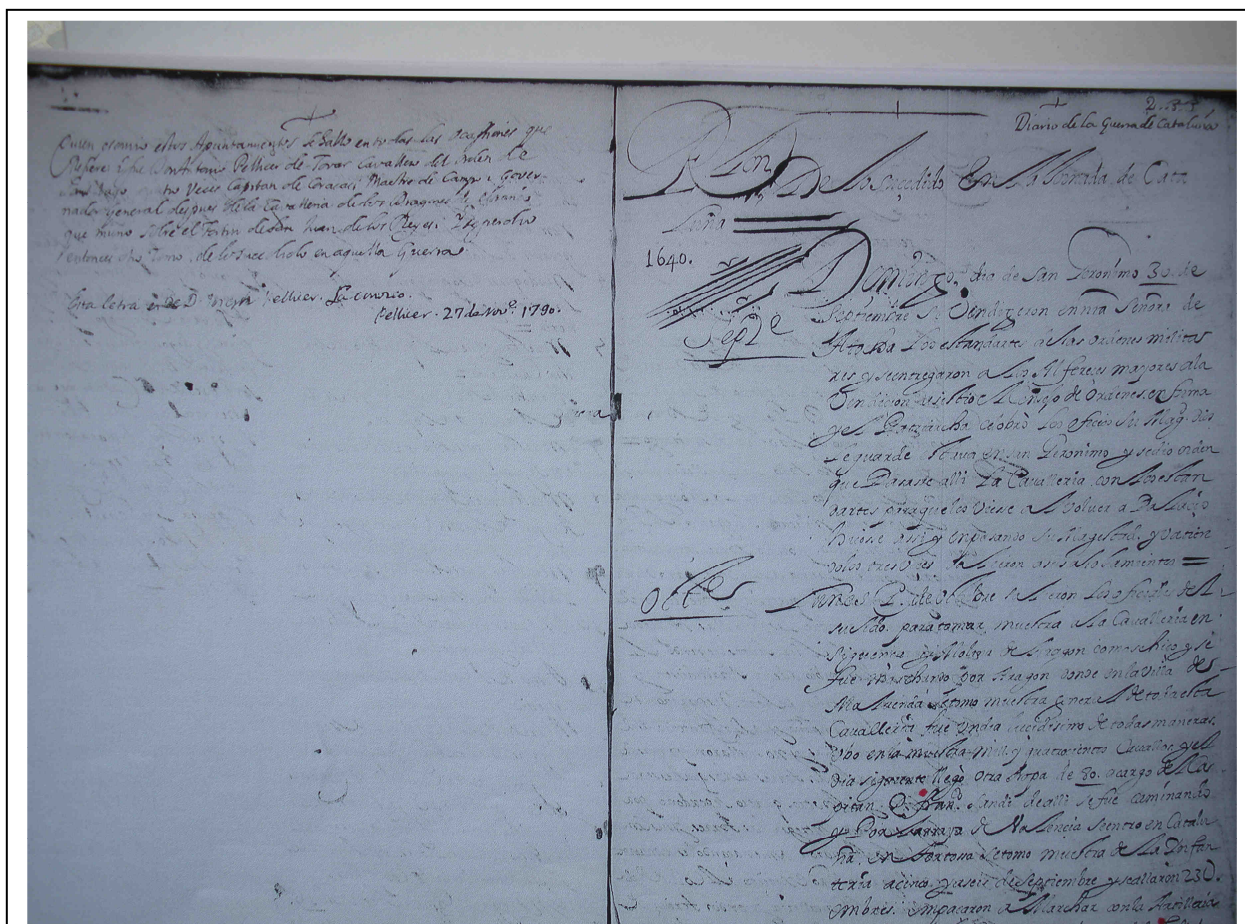 Quien escrivio estos Apuntamientos se hallo en todas las ocassiones que
Refiere i fue Don Antonio Pellicer de Tovar Cavallero del Orden de
Santiago quatro Veces Capitan de Coraças Maestro de Campo i Gover-
nador General despues de la Cavalleria de los Dragones de
que murio sobre el Fortin de San Juan de los Reyes:
entonces otro Tomo de lo sucedido en aquella Guerra
Esta letra es de D. Pellicer.
Pellicer. 27 de Nov.e 1790.
2.
Diario de la Guerra de Cataluña
De lo Sucedido En La Jornada de Cata
luña
1640.
Sep.e
Domingo dia de San Geronimo 30 de
Septiembre se Vendixeron en nra Señora de
Atocha Los estandartes de las ordenes milita
res y se entregaron a los Alfereces mayores a la
Vendicion asistio el Consejo de Ordenes en forma
y el Patriarcha celebrò Los oficios su Mag. Dios
le guarde estava en san Geronimo y se dio orden
que Pasase alli La Cavalleria con los estan
dartes para que los viese al Volver a Palacio
hiçose assi y en pasando su Magestad y
Otte
Lunes 1. de Octubre salieron Los oficiales del
sueldo para tomar muestra a La Cavalleria en
Siguença y Molina de Aragon como se hiço y se
fue marchando por Aragon donde en la Villa de
se tomo muestra General de toda esta
Cavalleria fue un dia lucidisimo de todas maneras
Ubo en la muestra mill y quatrocientos Cavallos y el
dia siguiente llegò otra tropa de 80. a cargo del Ca
pitan D. Sande de alli se fue caminando
y Por La raya de Valencia se entro en Catalu
ña, en Tortosa se tomo muestra de La Infan
teria a cinco y a seis de septiembre y se allaron 23
ombres. empeçaron a Marchar con la Artilleria